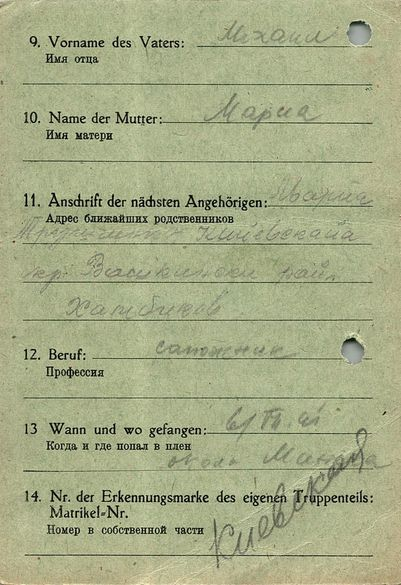 9. Vorname des Vaters: Михаил
Имя отца
10. Name der Mutter: Мариа
Имя матери
11. Anschrift der nächsten Angehörigen:
Адрес ближайших родственников
Киевская
кр.
12. Beruf: сапожник
Профессия
13 Wann und wo gefangen:
Когда и где попал в плен
около
14. Nr. der Erkennungsmarke des eigenen Truppenteils:
Matrikel-Nr.
Номер в собственной части
Киевская